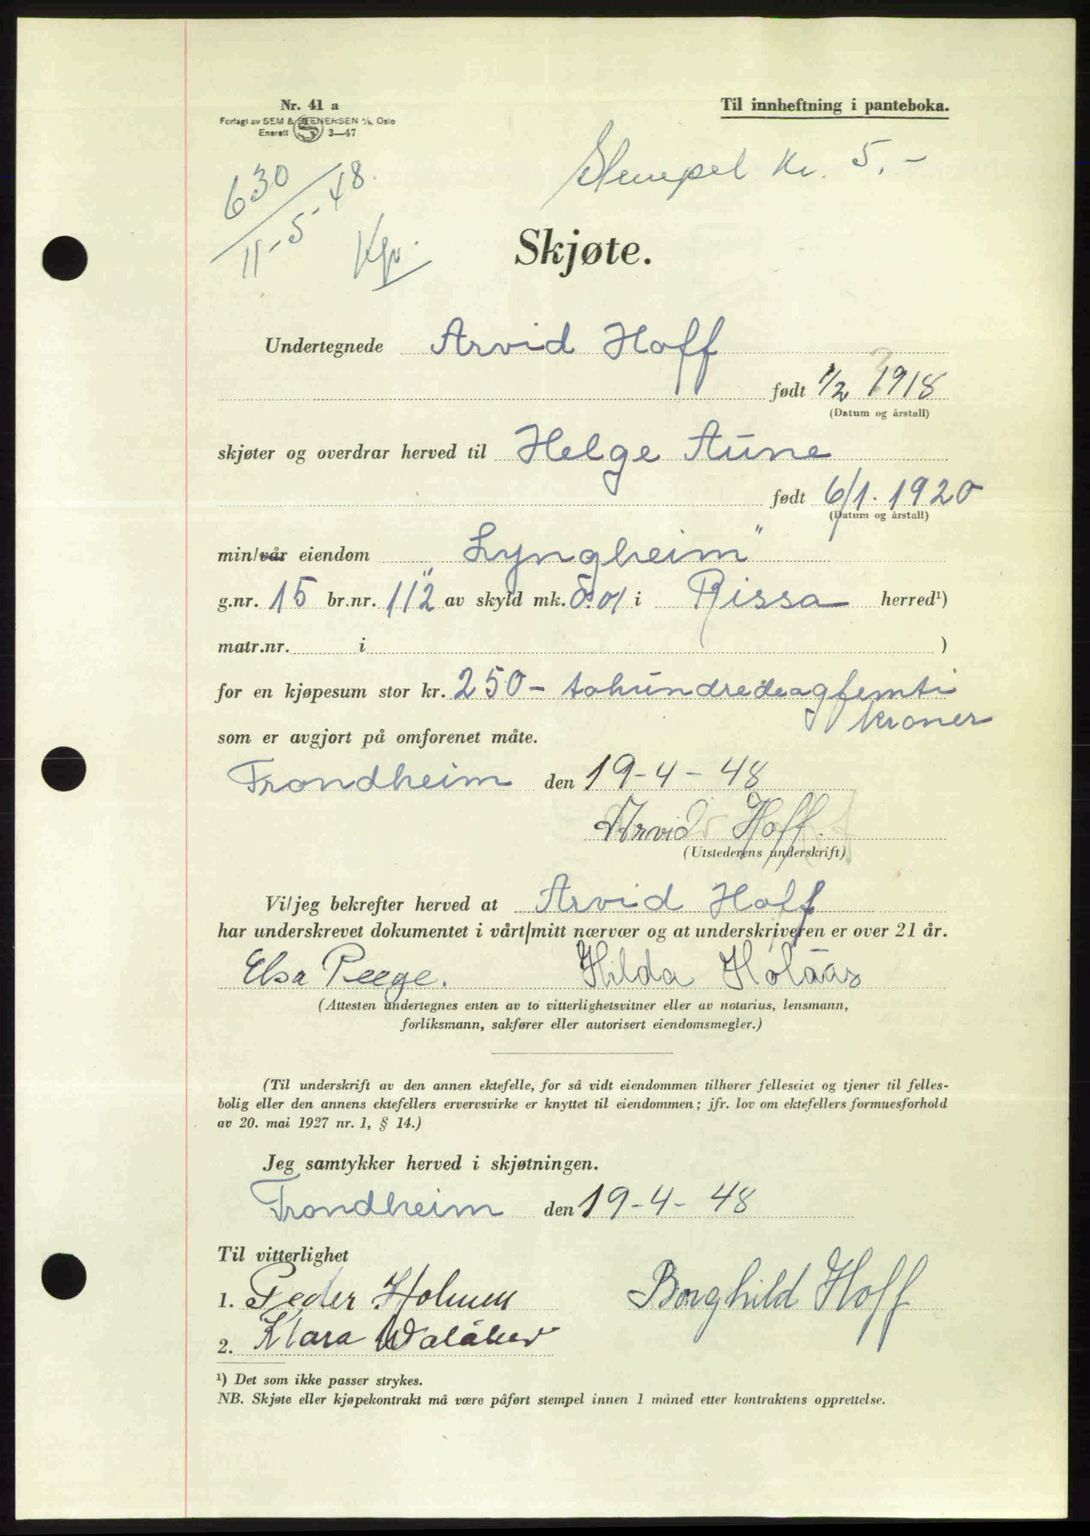 Nr. 41 a
Til innheftning i panteboka.
Forlagt av SEM & STENERSEN A/S, Oslo
Enerett 3—47
Stempel kr. 5.-
630
11-5-48.
Skjøte.
Undertegnede Arvid Hoff
født 1/2 1918
(Datum og årstall)
skjøter og overdrar herved til Helge Aune
født 6/1. 1920
(Datum og årstall)
min/vår eiendom "Lyngheim"
g.nr. 15 br.nr. 112 av skyld mk. 0.01 i Rissa herred¹)
matr.nr. i )
for en kjøpesum stor kr. 250- tohundredeogfemti
kroner
som er avgjort på omforenet måte.
Trondheim den 19-4-48
Arvid Hoff.
(Utstederens underskrift)
Vi/jeg bekrefter herved at Arvid Hoff
har underskrevet dokumentet i vårt/mitt nærvær og at underskriveren er over 21 år.
Elsa Hilda Holaas
(Attesten undertegnes enten av to vitterlighetsvitner eller av notarius, lensmann,
forliksmann, sakfører eller autorisert eiendomsmegler.)
(Til underskrift av den annen ektefelle, for så vidt eiendommen tilhører felleseiet og tjener til felles-
bolig eller den annens ektefellers ervervsvirke er knyttet til eiendommen; jfr. lov om ektefellers formuesforhold
av 20. mai 1927 nr. 1, § 14.)
Jeg samtykker herved i skjøtningen.
Trondheim den 19-4-48
Til vitterlighet
1. Peder Holmen
Borghild Hoff
2. Klara
¹) Det som ikke passer strykes.
NB. Skjøte eller kjøpekontrakt må være påført stempel innen 1 måned etter kontraktens opprettelse.